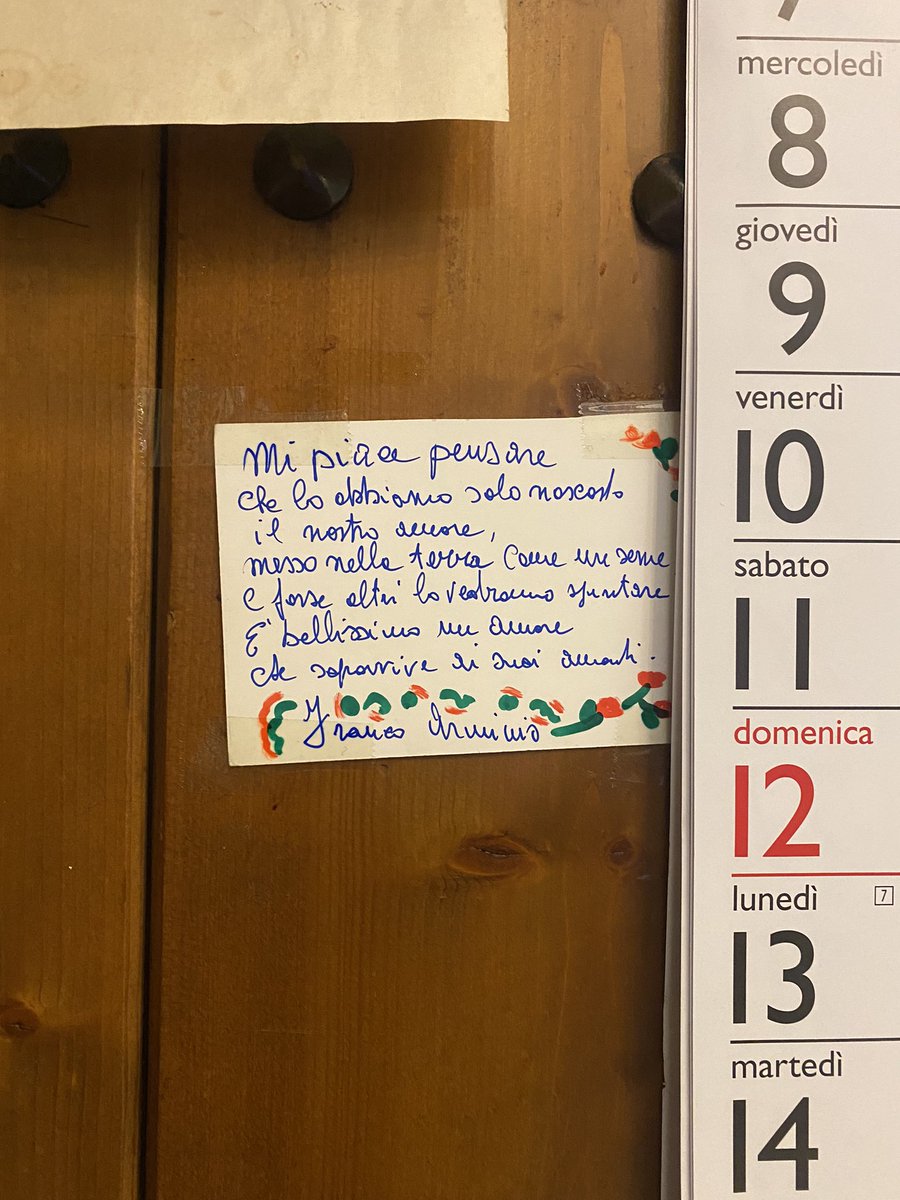 Mi piace pensare
che lo abbiamo solo nascosto
il nostro amore,
messo nella terra come un seme
e forse altri lo vedranno spuntare
E' bellissimo un amore
che sopravvive ai suoi amanti.
Franco Arminio
7
mercoledì
8
giovedì
9
venerdì
10
sabato
11
domenica
12
lunedì 7
13
martedì
14